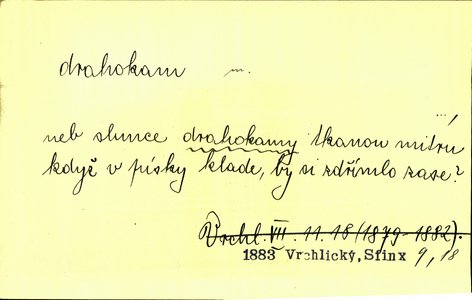 drahokam m.
...,
neb slunce drahokamy tkanou mitru
když v písky klade, by si zdřímlo zase?
Vrchl. VII. 11. 18 (1879-1882).
1883 Vrchlický, Sfinx 9, 18